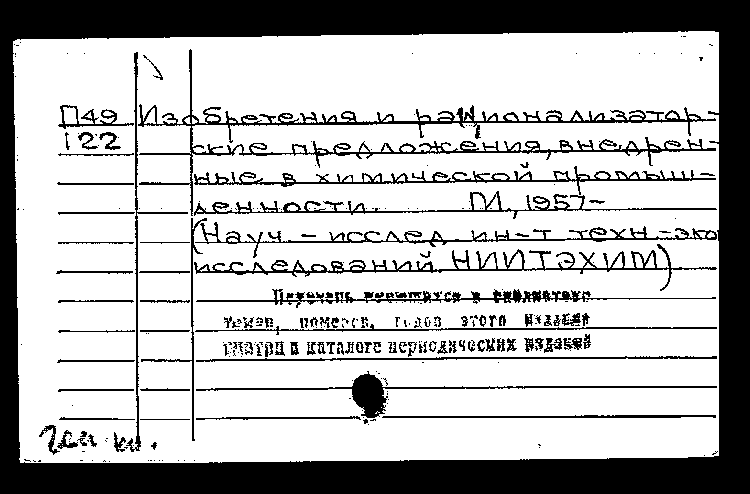 П49 Изобретения и рационализатор-
122 ские предложения, внедрен-
ные в химической промыш-
ленности. М., 1957-
(Науч.-исслед. ин-т техн.-эко
исследований НИИТЭХИМ)
Перечень имеющихся в библиотеке
томов, номеров, годов этого издания
смотри в каталоге периодических изданий
Ген кн.